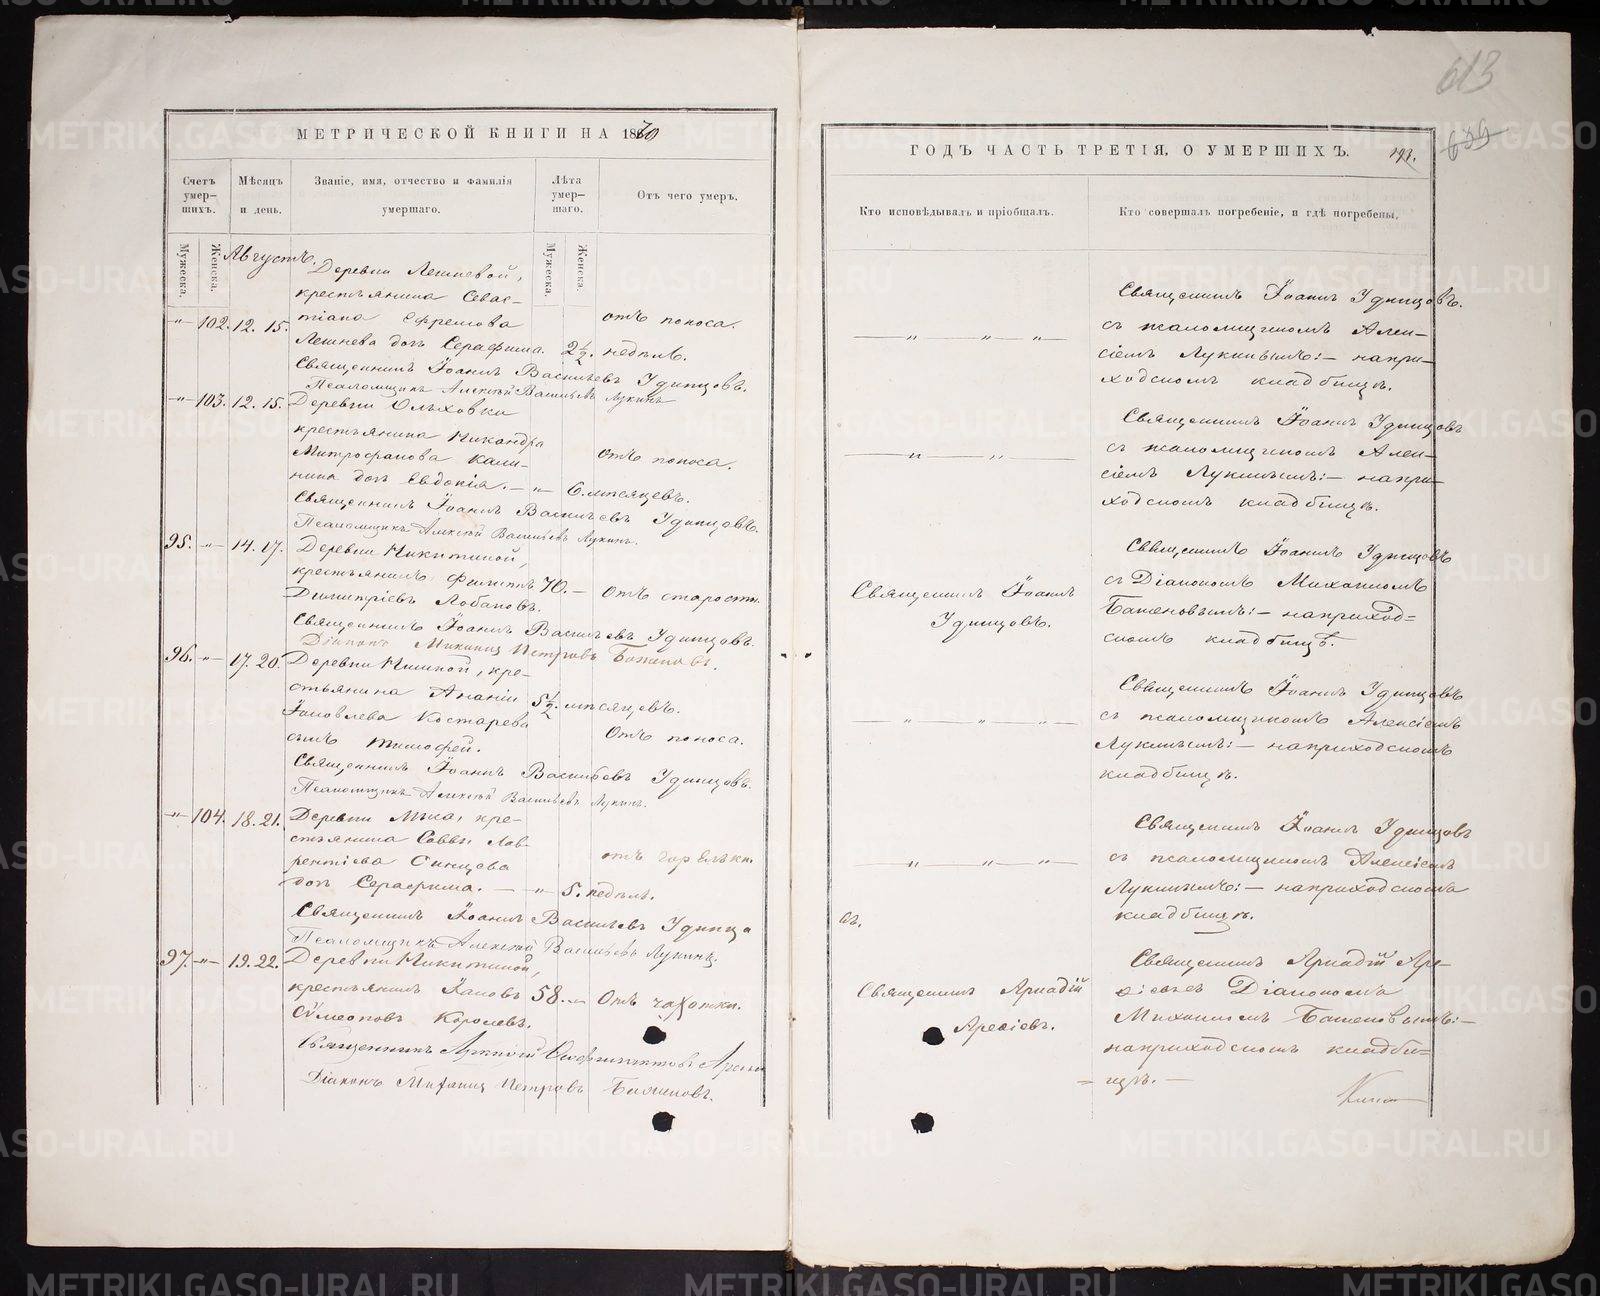 613
МЕТРИЧЕСКОЙ КНИГИ НА 1870
Счетъ умер-шихъ.
Мѣсяцъ и день.
Званіе, имя, отчество и фамилія умершаго.
Лѣта умер-шаго.
Отъ чего умеръ.
Мужеска.
Женска.
Мужеска.
Женска.
Августъ.
Деревни Лешневой,
крестьянина Севас-
тіана Ефремова
Лешнева дочь Серафима.
-"- 102. 12. 15. 2½. недѣль. отъ поноса.
Священникъ Іоаннъ Васильевъ Удинцовъ.
Псаломщикъ Алексѣй Васильевъ Лукинъ
-"- 103. 12. 15. Деревни Ольховки
крестьянина Никандра
Митрофанова Кали-
нина дочь Евдокія. - " - 6. мѣсяцевъ. Отъ поноса.
Священникъ Іоаннъ Васильевъ Удинцовъ.
Псаломщикъ Алексѣй Васильевъ Лукинъ.
95. -"- 14. 17. Деревни Никитиной,
крестьянинъ Филиппъ 70. - Отъ старости.
Димитріевъ Лобановъ.
Священникъ Іоаннъ Васильевъ Удинцовъ.
Діаконъ Михаилъ Петровъ Баженовъ.
96. -"- 17. 20. Деревни, кре-
стьянина Ананіи 5½. мѣсяцевъ.
Іаковлева Костарева Отъ поноса.
сынъ Тимофей.
Священникъ Іоаннъ Васильевъ Удинцовъ.
Псаломщикъ Алексѣй Васильевъ Лукинъ.
-"- 104. 18. 21. Деревни Мыса, кре-
стьянина Саввы Лав-
рентіева Синцова отъ горѣлки
дочь Серафима. - " - 5. недѣль.
Священникъ Іоаннъ Васильевъ Удинцо
Псаломщикъ Алексѣй Васильевъ Лукинъ.
97. -"- 19. 22. Деревни Никитиной,
крестьянинъ Іаковъ 58. - Отъ чахотки.
Сѵмеоновъ Королевъ.
Священникъ Аркадій
Діаконъ Михаилъ Петровъ Баженовъ.
ГОДЪ ЧАСТЬ ТРЕТІЯ, О УМЕРШИХЪ.
Кто исповѣдывалъ и пріобщалъ.
Кто совершалъ погребеніе, и гдѣ погребены.
" " "
Священникъ Іоаннъ Удинцовъ.
съ псаломщикомъ Алек-
сіемъ Лукинымъ: - на при-
ходскомъ кладбищѣ.
" "
Священникъ Іоаннъ Удинцовъ
съ псаломщикомъ Алек-
сіемъ Лукинымъ: - на при-
ходскомъ кладбищѣ.
Священникъ Іоаннъ
Удинцовъ.
Священникъ Іоаннъ Удинцовъ
съ Діакономъ Михаиломъ
Баженовымъ: - на приход=
скомъ кладбищѣ.
" " "
Священникъ Іоаннъ Удинцовъ
съ псаломщикомъ Алексіемъ
Лукинымъ: - на приходскомъ
кладбищѣ.
" " "
въ.
Священникъ Іоаннъ Удинцовъ
съ псаломщикомъ Алексіемъ
Лукинымъ: - на приходскомъ
кладбищѣ.
Священникъ Аркадій
Арефіевъ.
Священникъ Аркадій Аре-
фіевъ съ Діакономъ
Михаиломъ Баженовымъ: -
на приходскомъ кладби=
= щѣ. -
METRIKI.GASO-URAL.RU